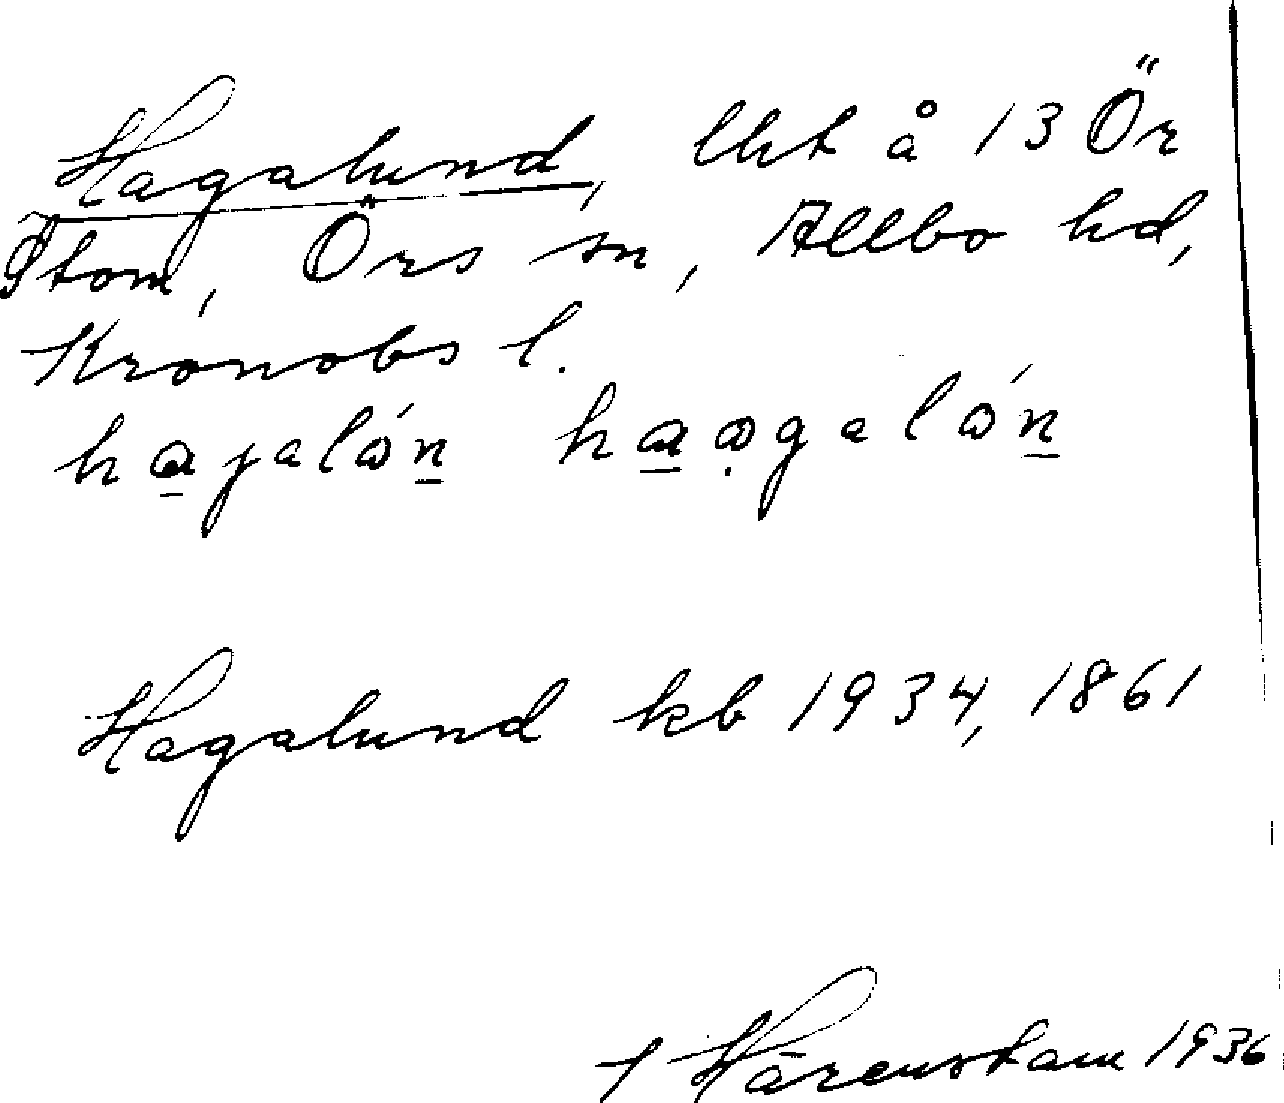 Hagalund, lht å 13 Ör
Stom, Örs sn, Allbo hd,
Kronobs l.
Hagalund kb 1934, 1861
Härenstam 1936